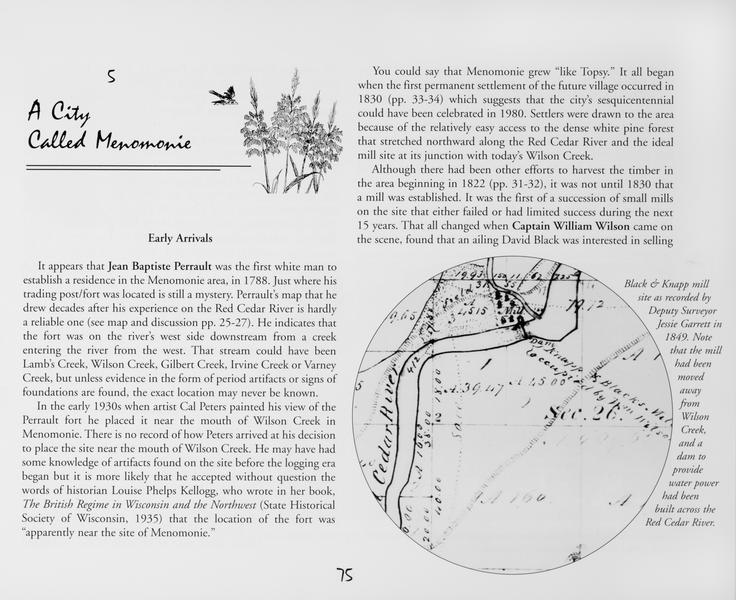 5
A City
Called Menomonie
Early Arrivals
It appears that Jean Baptiste Perrault was the first white man to
establish a residence in the Menomonie area, in 1788. Just where his
trading post/fort was located is still a mystery. Perrault's map that he
drew decades after his experience on the Red Cedar River is hardly
a reliable one (see map and discussion pp. 25-27). He indicates that
the fort was on the river's west side downstream from a creek
entering the river from the west. That stream could have been
Lamb's Creek, Wilson Creek, Gilbert Creek, Irvine Creek or Varney
Creek, but unless evidence in the form of period artifacts or signs of
foundations are found, the exact location may never be known.
In the early 1930s when artist Cal Peters painted his view of the
Perrault fort he placed it near the mouth of Wilson Creek in
Menomonie. There is no record of how Peters arrived at his decision
to place the site near the mouth of Wilson Creek. He may have had
some knowledge of artifacts found on the site before the logging era
began but it is more likely that he accepted without question the
words of historian Louise Phelps Kellogg, who wrote in her book,
The British Regime in Wisconsin and the Northwest (State Historical
Society of Wisconsin, 1935) that the location of the fort was
"apparently near the site of Menomonie."
You could say that Menomonie grew "like Topsy." It all began
when the first permanent settlement of the future village occurred in
1830 (pp. 33-34) which suggests that the city's sesquicentennial
could have been celebrated in 1980. Settlers were drawn to the area
because of the relatively easy access to the dense white pine forest
that stretched northward along the Red Cedar River and the ideal
mill site at its junction with today's Wilson Creek.
Although there had been other efforts to harvest the timber in
the area beginning in 1822 (pp. 31-32), it was not until 1830 that
a mill was established. It was the first of a succession of small mills
on the site that either failed or had limited success during the next
15 years. That all changed when Captain William Wilson came on
the scene, found that an ailing David Black was interested in selling
Black & Knapp mill
site as recorded by
Deputy Surveyor
Jessie Garrett in
1849. Note
that the mill
had been
moved
away
from
Wilson
Creek,
and a
dam to
provide
water power
had been
built across the
Red Cedar River.
Field
A
4515
Mill
Dam
Knapp & Blacks Mill
Occupied by
Sec. 26.
Cedar River
412
75